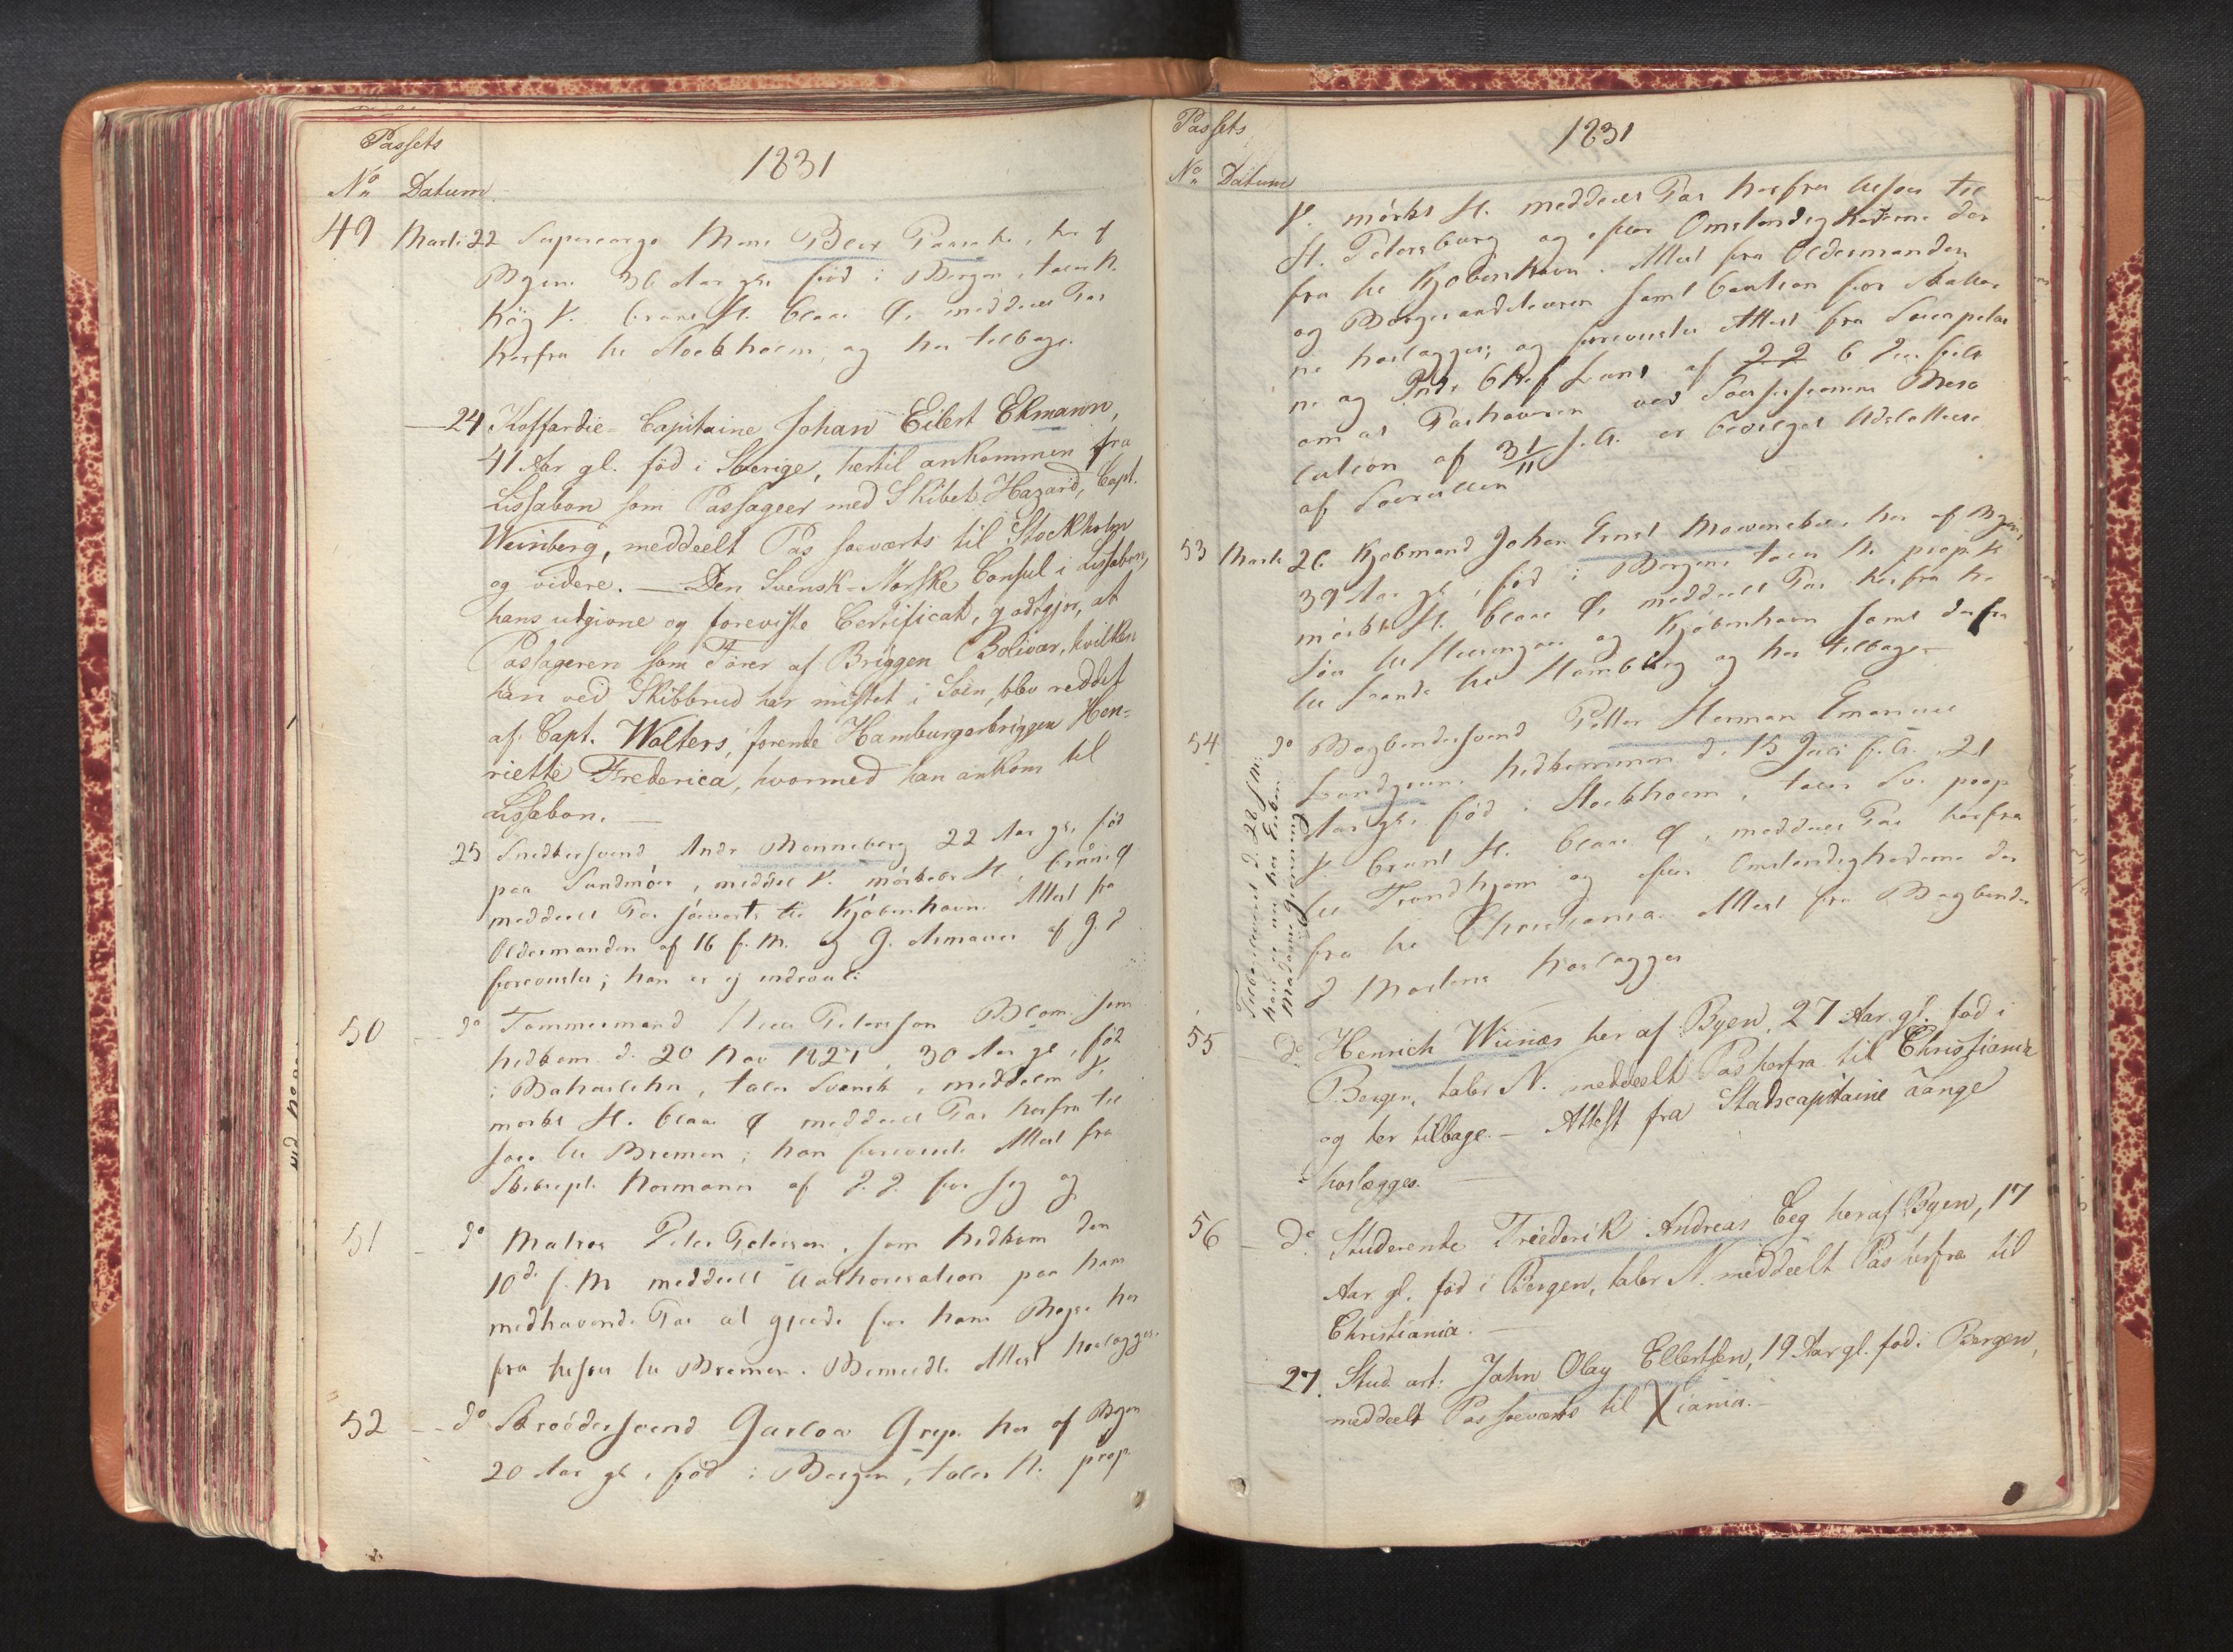 Passets
1831
No Datum
49 Marti 22 Supercargo Mons Beer, her af
Byen 36 Aar gl. fød i Bergen, taler N.
Høy V. brunt H. blaae Ø. meddeelt Pas
herfra til Stockholm, og her tilbage.
24 Koffardie-Capitaine Johan Eilert Ekmann,
41 Aar gl. fød i Sverige, hertil ankommen fra
Lissabon som Passageer med Skibet Hazard, Capt.
Weinberg, meddeelt Pas søeværts til Stockholm
og videre. — Den Svensk-Norske Consul i Lissabon,
hans udgivne og foreviste Certificat, godtgjør, at
Passageren som Fører af Briggen Bolivar, hvilken
han ved Skibbrud har mistet i Søen, blev reddet
af Capt. Walters, førende Hamburgerbriggen Hen-
riette Frederica, hvormed han ankom til
Lissabon. —
25 Snedkersvend Andr Monneberg 22 Aar gl. fød
paa Sundmøer, middel V. mørkebr H, brune Ø
meddeelt Pas søeværts til Kjøbenhavn. Attest fra
Oldermanden af 16 f. M. og G. af g. D
forevistes; han er ej indrouleret
50 do Tømmermand Petersson Blom som
hidkom d. 20 Nov 1827, 30 Aar gl, fød
i Bahuslehn, taler Svensk, middelm V.
mørkt H. blaae Ø meddeelt Pas herfra til
Søes til Bremen; han foreviste Attest fra
Skibscpt. Normann af D. D. for sig og
51 do Matros Peder Petersen, som hidkom den
10de f. M meddeelt Authorisation paa ham
medhavende Pas at gjælde for hans Reyse her
fra tilsøes til Bremen. Bemeldte Attest hoslægges.
52 do Skrædersvend Garloer Grep. her af Byen
20 Aar gl, fød i Bergen, taler N. prop.
Passets
1831
No Datum
V. mørkt H. meddeelt Pas herfra tilsøes til
St. Petersburg og efter Omstændighederne der
fra til Kjøbenhavn. Attest fra Oldermanden
og Borgerandeleveren samt Caution for Skatter
ne hoslægges; og forevistes Attest fra
ne og af 22 6
om at Pashaveren ved Sessionens
lation af 31/11 f. A. er bevilget Udslettelse
af Søerullen
53 Marti 26 Kjøbmand Johan Ernst Mowinckel, her af Byen,
39 Aar gl, fød i Bergen, taler N. prop. V.
mørkbr H. blaae Ø. meddeelt Pas herfra til
Søes til Helsingøer og Kjøbenhavn samt derfra
til Lands til Hamburg og her tilbage —
54 do Bogbindersvend Petter Herman Emanuel
Landgreen hidkommen d. 15 Juli f. A. 21
Aar gl, fød i Stockholm, taler Sv. prop
V. brunt H. blaae Ø, meddeelt Pas herfra
til Trondhjem og efter Omstændighederne der
fra til Christiania. Attest fra Bogbinder
J Martens hoslægges
Tilbageleveret d. 28 f. M.
han er nu hos Enken
Madame Grønning
55 do Henrich Wiinæs her af Byen, 27 Aar gl. fød i
Bergen, taler N. meddeelt Pas herfra til Christiania
og her tilbage. — Attest fra Stadscapitaine Lange
hoslægges. —
56 do Studerende Friederik Andreas Eeg her af Byen, 17
Aar gl. fød i Bergen, taler N. meddeelt Pas herfra til
Christiania. —
27. Stud. art: Jahn Olay Ellertsen, 19 Aar gl. fød i Bergen,
meddeelt Pas søeværts til Xiania. —